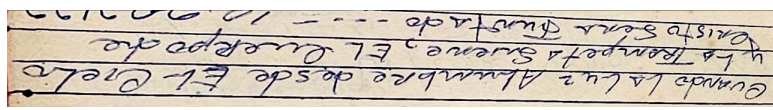 Cuando La Luz Alumbre desde EL Cielo
y La Trompeta Suene, EL Cuerpo de
Cristo Será Juntado ----